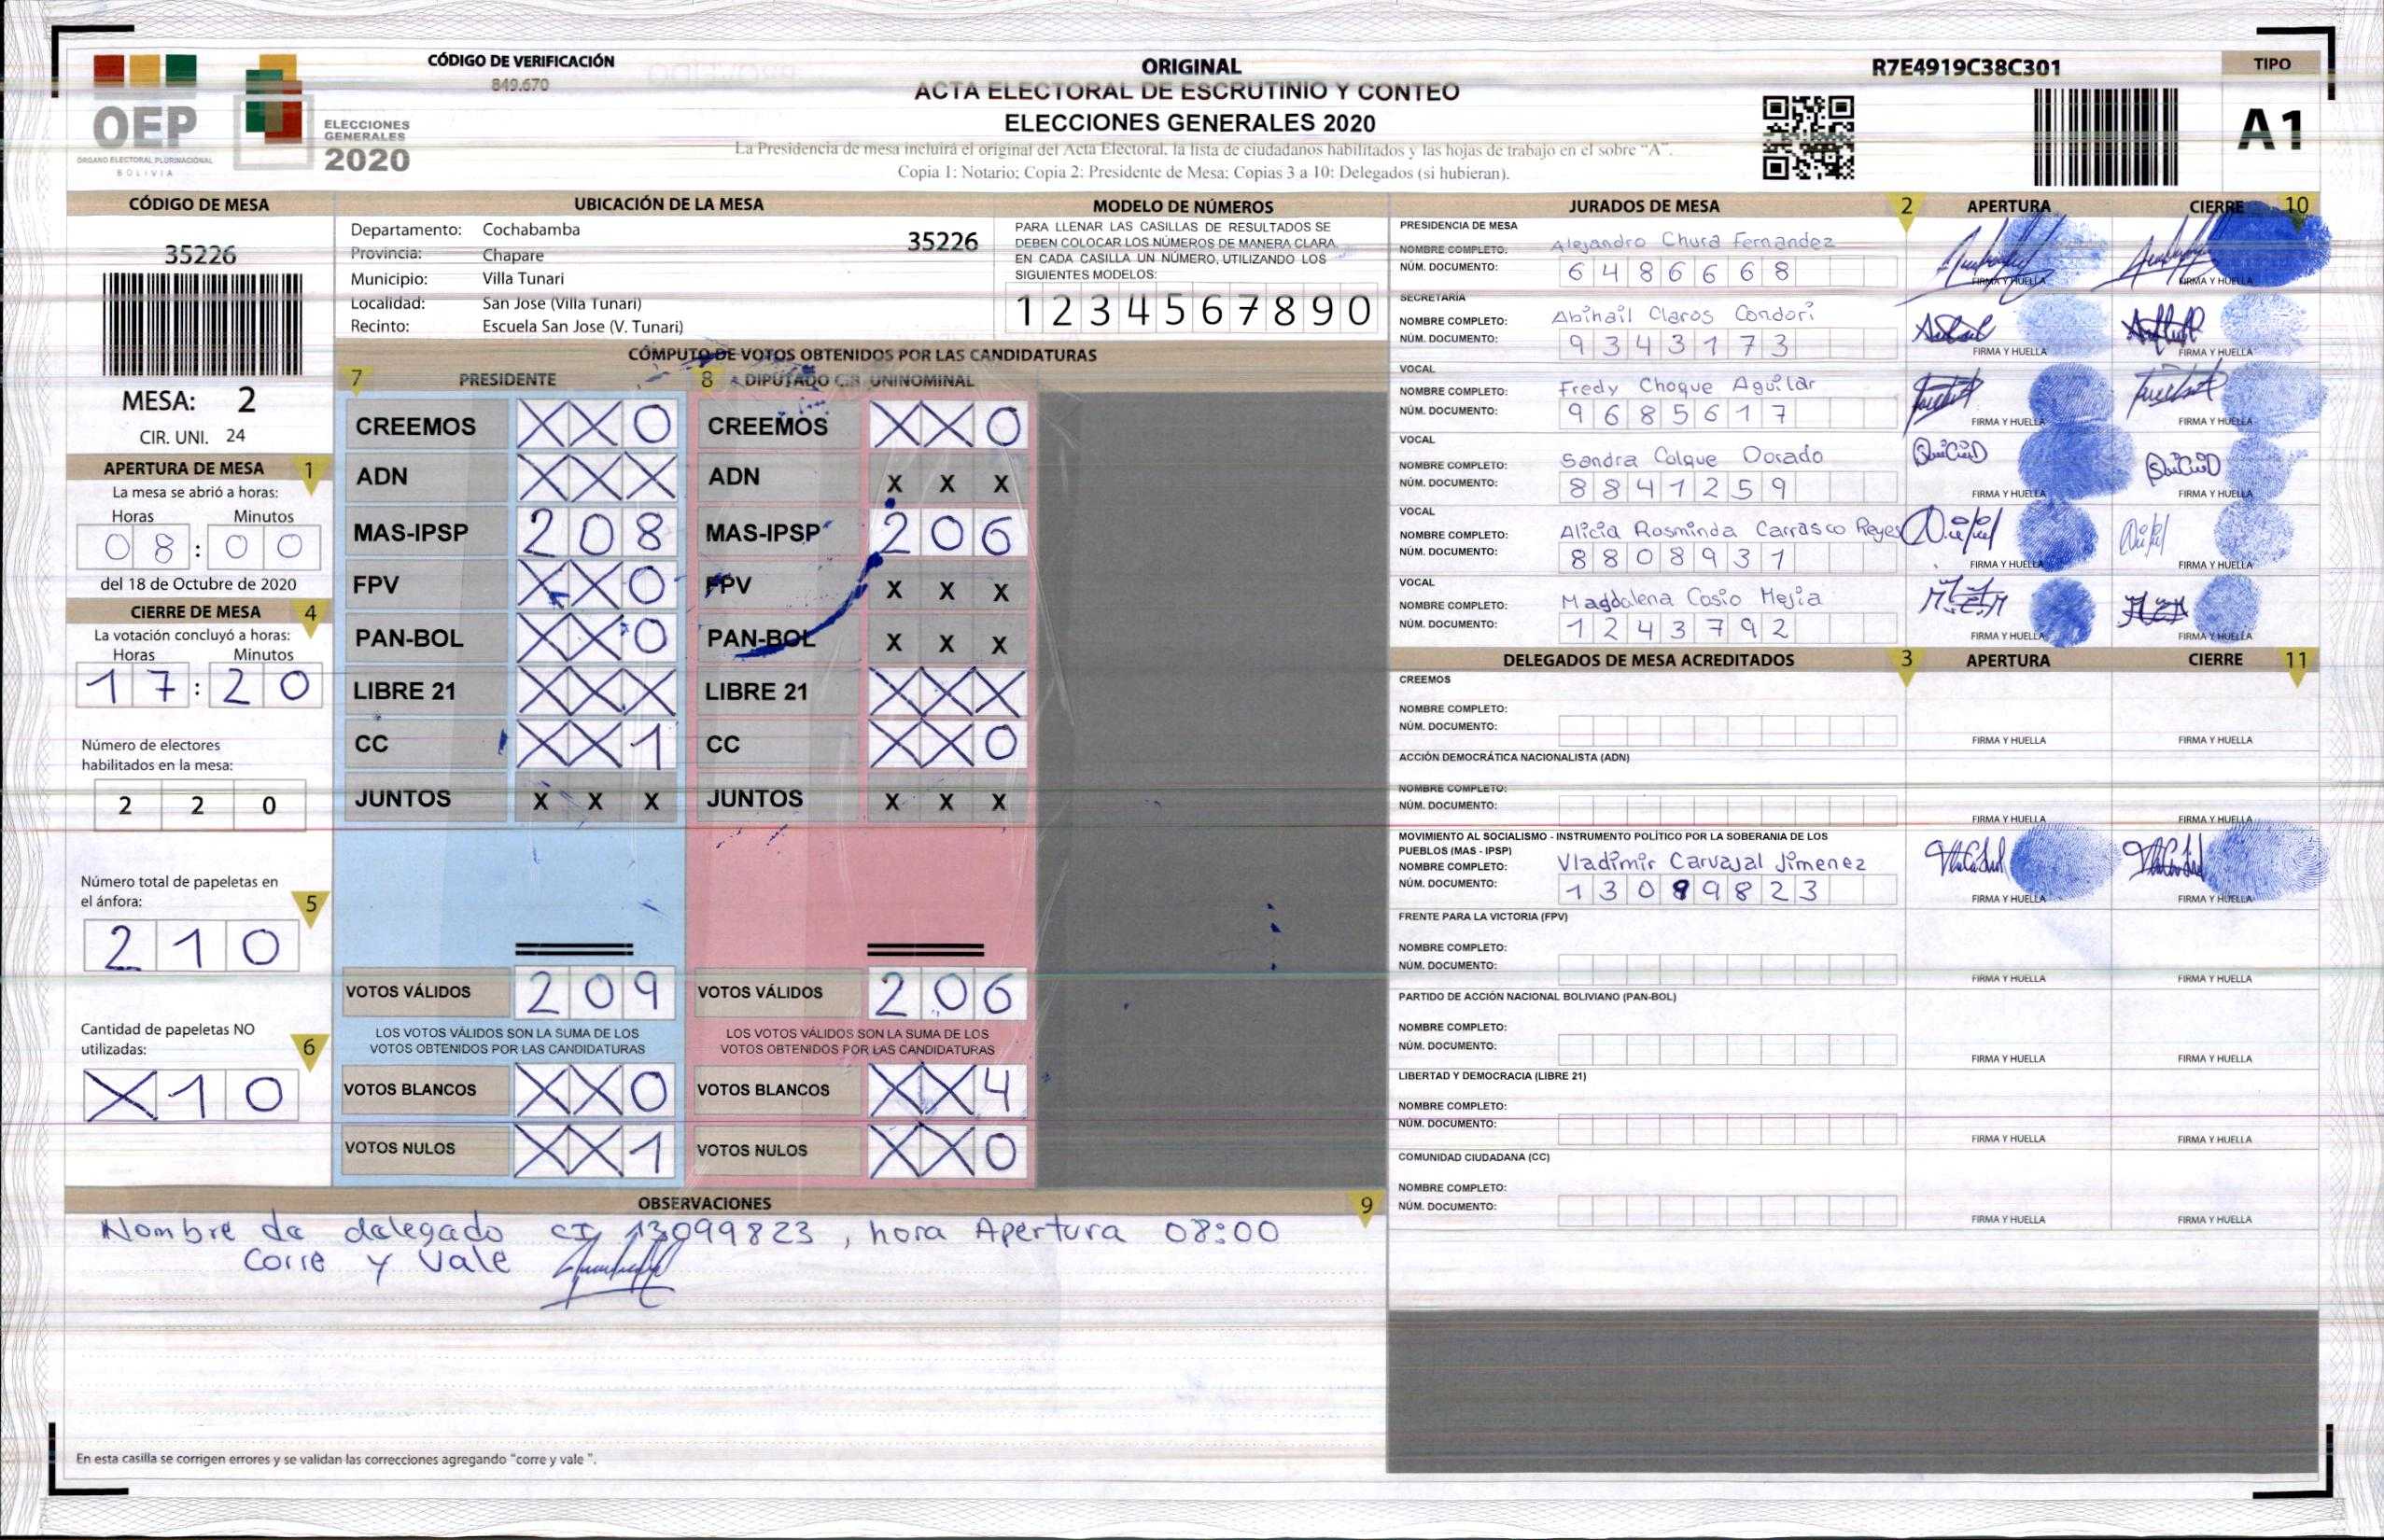 OEP
ÓRGANO ELECTORAL PLURINACIONAL
BOLIVIA
ELECCIONES
GENERALES
2020
CÓDIGO DE VERIFICACIÓN
849.670
ORIGINAL
ACTA ELECTORAL DE ESCRUTINIO Y CONTEO
ELECCIONES GENERALES 2020
La Presidencia de mesa incluirá el original del Acta Electoral, la lista de ciudadanos habilitados y las hojas de trabajo en el sobre “A”.
Copia 1: Notario; Copia 2: Presidente de Mesa; Copias 3 a 10: Delegados (si hubieran).
R7E4919C38C301
TIPO
A1
CÓDIGO DE MESA
35226
MESA: 2
CIR. UNI. 24
APERTURA DE MESA 1
La mesa se abrió a horas:
Horas Minutos
0 8 : 0 0
del 18 de Octubre de 2020
CIERRE DE MESA 4
La votación concluyó a horas:
Horas Minutos
1 7 : 2 0
Número de electores
habilitados en la mesa:
2 2 0
Número total de papeletas en
el ánfora: 5
2 1 0
Cantidad de papeletas NO
utilizadas: 6
X 1 0
UBICACIÓN DE LA MESA
Departamento: Cochabamba
35226
Provincia: Chapare
Municipio: Villa Tunari
Localidad: San Jose (Villa Tunari)
Recinto: Escuela San Jose (V. Tunari)
MODELO DE NÚMEROS
PARA LLENAR LAS CASILLAS DE RESULTADOS SE
DEBEN COLOCAR LOS NÚMEROS DE MANERA CLARA.
EN CADA CASILLA UN NÚMERO, UTILIZANDO LOS
SIGUIENTES MODELOS:
1 2 3 4 5 6 7 8 9 0
CÓMPUTO DE VOTOS OBTENIDOS POR LAS CANDIDATURAS
7 PRESIDENTE
CREEMOS X X 0
ADN X X X
MAS-IPSP 2 0 8
FPV X X 0
PAN-BOL X X 0
LIBRE 21 X X X
CC X X 1
JUNTOS X X X
VOTOS VÁLIDOS 2 0 9
LOS VOTOS VÁLIDOS SON LA SUMA DE LOS
VOTOS OBTENIDOS POR LAS CANDIDATURAS
VOTOS BLANCOS X X 0
VOTOS NULOS X X 1
8 DIPUTADO UNINOMINAL
CREEMOS X X 0
ADN X X X
MAS-IPSP 2 0 6
FPV X X X
PAN-BOL X X X
LIBRE 21 X X X
CC X X 0
JUNTOS X X X
VOTOS VÁLIDOS 2 0 6
LOS VOTOS VÁLIDOS SON LA SUMA DE LOS
VOTOS OBTENIDOS POR LAS CANDIDATURAS
VOTOS BLANCOS X X 4
VOTOS NULOS X X 0
OBSERVACIONES 9
Nombre de delegado CI 13099823, hora Apertura 08:00
Corre y Vale
En esta casilla se corrigen errores y se validan las correcciones agregando “corre y vale ”.
JURADOS DE MESA 2 APERTURA CIERRE 10
PRESIDENCIA DE MESA
NOMBRE COMPLETO: Alejandro Chura Fernandez
NÚM. DOCUMENTO: 6 4 8 6 6 6 8
FIRMA Y HUELLA FIRMA Y HUELLA
SECRETARÍA
NOMBRE COMPLETO: Abihail Claros Condori
NÚM. DOCUMENTO: 9 3 4 3 1 7 3
FIRMA Y HUELLA FIRMA Y HUELLA
VOCAL
NOMBRE COMPLETO: Fredy Choque Aguilar
NÚM. DOCUMENTO: 9 6 8 5 6 1 7
FIRMA Y HUELLA FIRMA Y HUELLA
VOCAL
NOMBRE COMPLETO: Sandra Colque Dorado
NÚM. DOCUMENTO: 8 8 4 1 2 5 9
FIRMA Y HUELLA FIRMA Y HUELLA
VOCAL
NOMBRE COMPLETO: Alicia Rosminda Carrasco Reyes
NÚM. DOCUMENTO: 8 8 0 8 9 3 1
FIRMA Y HUELLA FIRMA Y HUELLA
VOCAL
NOMBRE COMPLETO: Magdalena Cosio Mejia
NÚM. DOCUMENTO: 1 2 4 3 7 9 2
FIRMA Y HUELLA FIRMA Y HUELLA
DELEGADOS DE MESA ACREDITADOS 3 APERTURA CIERRE 11
CREEMOS
NOMBRE COMPLETO:
NÚM. DOCUMENTO:
FIRMA Y HUELLA FIRMA Y HUELLA
ACCIÓN DEMOCRÁTICA NACIONALISTA (ADN)
NOMBRE COMPLETO:
NÚM. DOCUMENTO:
FIRMA Y HUELLA FIRMA Y HUELLA
MOVIMIENTO AL SOCIALISMO - INSTRUMENTO POLÍTICO POR LA SOBERANIA DE LOS
PUEBLOS (MAS - IPSP)
NOMBRE COMPLETO: Vladimir Carvajal Jimenez
NÚM. DOCUMENTO: 1 3 0 9 9 8 2 3
FIRMA Y HUELLA FIRMA Y HUELLA
FRENTE PARA LA VICTORIA (FPV)
NOMBRE COMPLETO:
NÚM. DOCUMENTO:
FIRMA Y HUELLA FIRMA Y HUELLA
PARTIDO DE ACCIÓN NACIONAL BOLIVIANO (PAN-BOL)
NOMBRE COMPLETO:
NÚM. DOCUMENTO:
FIRMA Y HUELLA FIRMA Y HUELLA
LIBERTAD Y DEMOCRACIA (LIBRE 21)
NOMBRE COMPLETO:
NÚM. DOCUMENTO:
FIRMA Y HUELLA FIRMA Y HUELLA
COMUNIDAD CIUDADANA (CC)
NOMBRE COMPLETO:
NÚM. DOCUMENTO:
FIRMA Y HUELLA FIRMA Y HUELLA